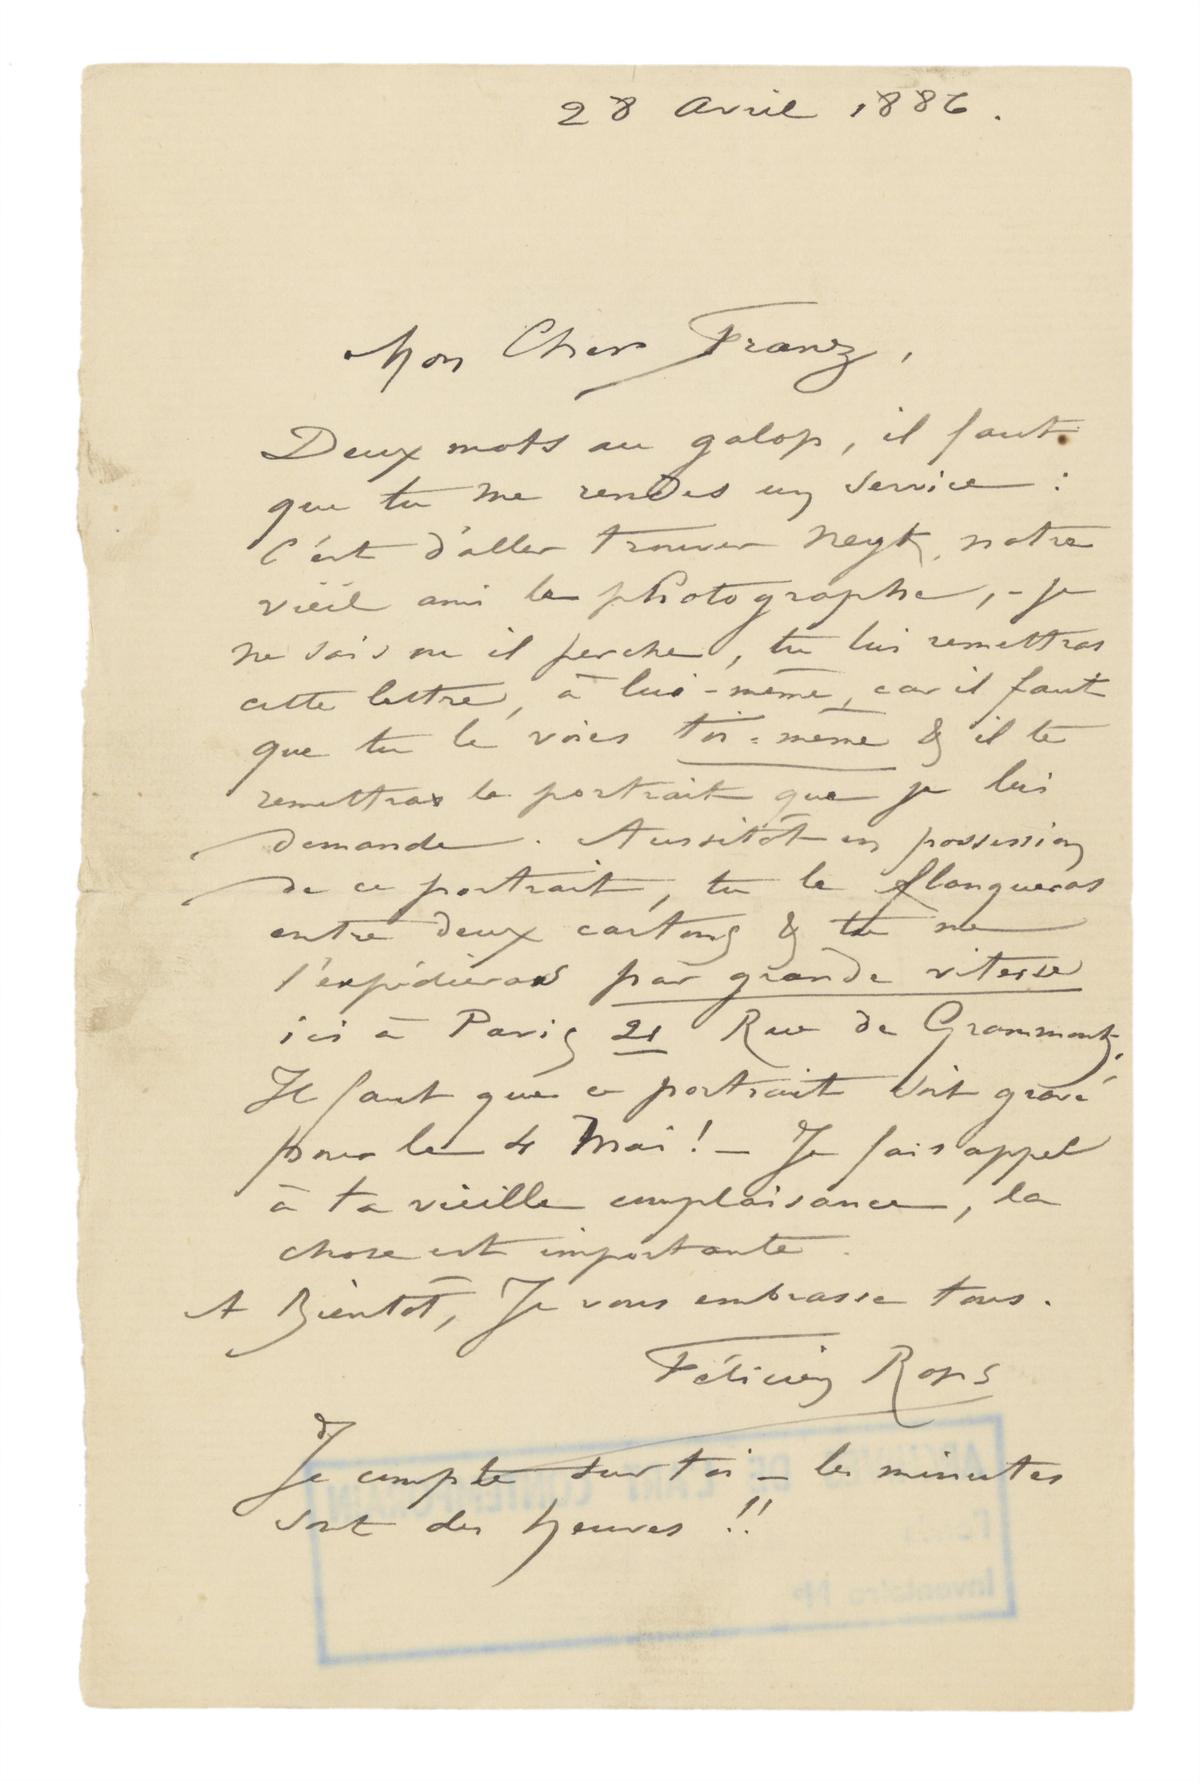 28 Avril 1886.
Mon Cher Franz,
Deux mots au galop, il faut
que tu me rendes un service :
C'est d'aller trouver Neyt, notre
vieil ami le photographe, - je
ne sais ou il perche, tu lui remettras
cette lettre, à lui-même, car il faut
que tu le voies toi-même & il te
remettras le portrait que je lui
demande. Aussitôt en possession
de ce portrait, tu le flanqueras
entre deux cartons & tu me
l'expédieras par grande vitesse
ici à Paris 21 Rue de Grammont.
Il faut que ce portrait soit gravé
pour le 4 Mai! — Je fais appel
à ta vieille complaisance, la
chose est importante.
A Bientôt, Je vous embrasse tous.
Félicien Rops
Je compte sur toi — les minutes
sont des heures !!
ARCHIVES DE L'ART CONTEMPORAIN
Fonds
Inventaire Nº